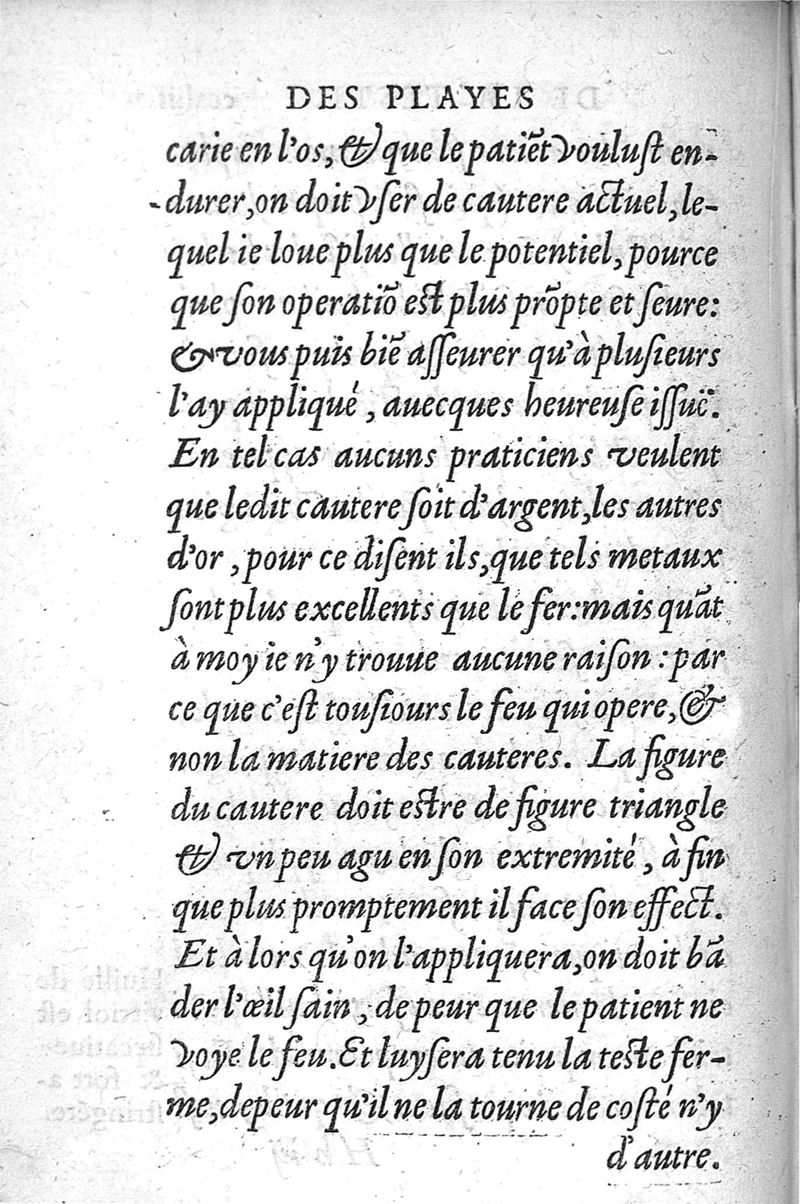 DES PLAYES
carie en l'os, & que le patiẽt vouluſt en-
durer, on doit vſer de cautere actuel, le-
quel ie loue plus que le potentiel, pource
que ſon operatiõ eſt plus prõpte et ſeure:
& vous puis biẽ aſſeurer qu'à pluſieurs
l'ay appliqué, auecques heureuſe iſſuë.
En tel cas aucuns praticiens veulent
que ledit cautere ſoit d'argent, les autres
d'or, pour ce diſent ils, que tels metaux
ſont plus excellents que le fer: mais quãt
à moy ie n'y trouue aucune raiſon: par
ce que c'eſt touſiours le feu qui opere, &
non la matiere des cauteres. La figure
du cautere doit eſtre de figure triangle
& vn peu agu en ſon extremité, à fin
que plus promptement il face ſon effect.
Et à lors qu'on l'appliquera, on doit bã
der l'œil ſain, de peur que le patient ne
voye le feu. Et luy ſera tenu la teſte fer-
me, de peur qu'il ne la tourne de coſté n'y
d'autre.